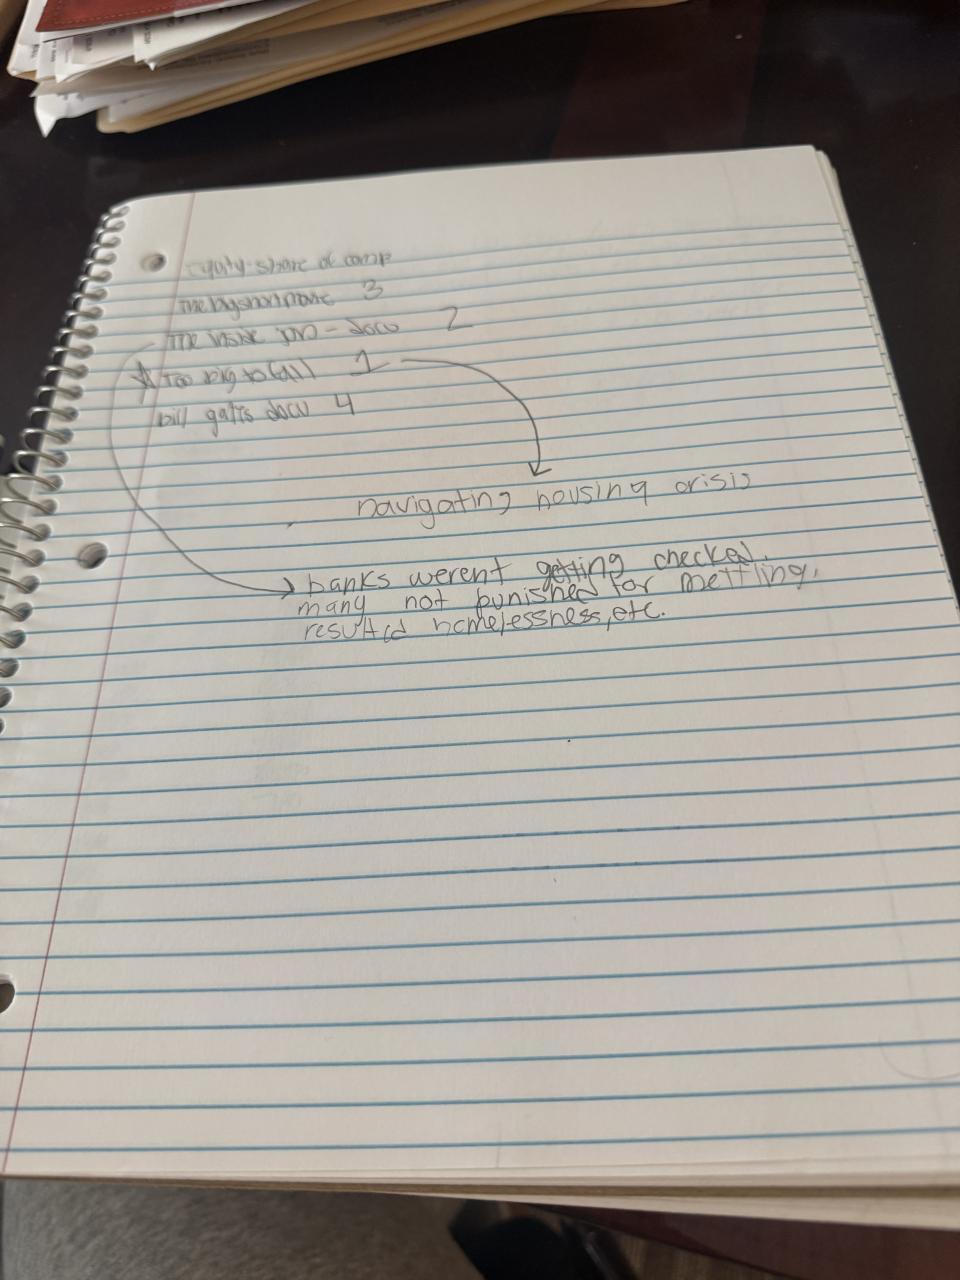 equity-share of comp
The big short movie 3
The inside job - docu 2
☆ Too big to fail 1
bill gates docu 4
navigating housing crisis
banks werent getting checked.
many not punished for mettling.
resulted homelessness, etc.